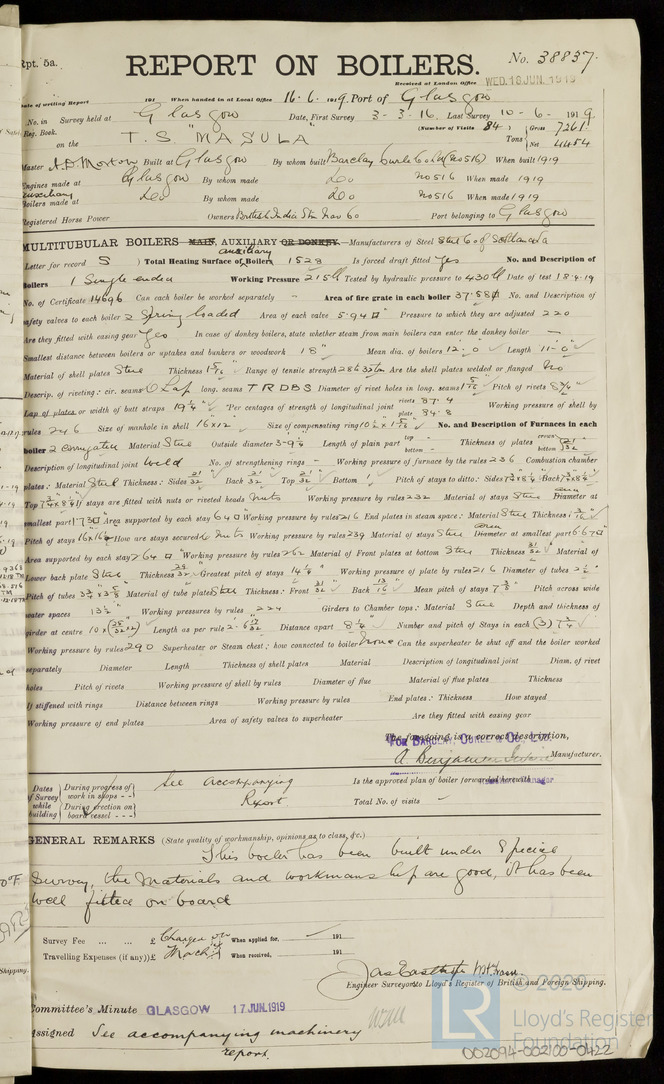 Rpt. 5a.
REPORT ON BOILERS.
No. 38837.
Received at London Office WED. 18 JUN. 1919
Date of writing Report 191 When handed in at Local Office 16. 6. 1919. Port of Glasgow
No. in Survey held at Glasgow Date, First Survey 3-3-16. Last Survey 10-6-1919.
Reg. Book. (Number of Visits 84) Gross 7261
on the T.S "MASULA" Tons Net 4454
Master A.D. Morton Built at Glasgow By whom built Barclay Curle & Co Ld (No 516) When built 1919
Engines made at Glasgow By whom made Do No 516 When made 1919
auxiliary
Boilers made at Do By whom made Do No 516 When made 1919
Registered Horse Power Owners British India Stm Nav Co Port belonging to Glasgow
MULTITUBULAR BOILERS MAIN, AUXILIARY OR DONKEY.—Manufacturers of Steel Steel Co of Scotland Ld
auxiliary
Letter for record S ) Total Heating Surface of Boilers 1528 Is forced draft fitted Yes No. and Description of
Boilers 1 Single ended Working Pressure 215 lb Tested by hydraulic pressure to 430 lb Date of test 18.4.19
No. of Certificate 14696 Can each boiler be worked separately Area of fire grate in each boiler 37.58 No. and Description of
safety valves to each boiler 2 Spring loaded Area of each valve 5.94 Pressure to which they are adjusted 220
Are they fitted with easing gear Yes In case of donkey boilers, state whether steam from main boilers can enter the donkey boiler —
Smallest distance between boilers or uptakes and bunkers or woodwork 18" Mean dia. of boilers 12'-0" Length 11'-0"
Material of shell plates Steel Thickness 1 5/16 Range of tensile strength 28 to 32 tons Are the shell plates welded or flanged No
Descrip. of riveting: cir. seams D Lap long. seams T R D B S Diameter of rivet holes in long. seams 1 5/16 Pitch of rivets 8 3/4"
Lap of plates or width of butt straps 19 1/4" Per centages of strength of longitudinal joint rivets 87.4 plate 84.8 Working pressure of shell by
rules 226 Size of manhole in shell 16"x12" Size of compensating ring No. and Description of Furnaces in each
boiler 2 corrugated Material Steel Outside diameter 3-9 1/4 Length of plain part top bottom Thickness of plates crown bottom
Description of longitudinal joint Weld No. of strengthening rings — Working pressure of furnace by the rules 236 Combustion chamber
plates: Material Steel Thickness: Sides 21/32 Back 21/32 Top 21/32 Bottom 1" Pitch of stays to ditto: Sides Back
Top If stays are fitted with nuts or riveted heads Nuts Working pressure by rules 232 Material of stays Steel Diameter at
smallest part 1.73 Area supported by each stay 64 Working pressure by rules 216 End plates in steam space: Material Steel Thickness
Pitch of stays 16x16 How are stays secured D Nuts Working pressure by rules 239 Material of stays Steel Diameter at smallest part 6.67
Area supported by each stay 264 Working pressure by rules 262 Material of Front plates at bottom Steel Thickness 31/32 Material of
Lower back plate Steel Thickness 29/32 Greatest pitch of stays 14 1/4" Working pressure of plate by rules 216 Diameter of tubes 2 1/2"
Pitch of tubes Material of tube plates Steel Thickness: Front 31/32 Back 13/16 Mean pitch of stays 7 5/8 Pitch across wide
water spaces 13 1/2" Working pressures by rules 224 Girders to Chamber tops: Material Steel Depth and thickness of
girder at centre Length as per rule 2-6 17/32 Distance apart 8 1/4" Number and pitch of Stays in each (3) 7 3/4"
Working pressure by rules 290 Superheater or Steam chest; how connected to boiler None Can the superheater be shut off and the boiler worked
separately Diameter Length Thickness of shell plates Material Description of longitudinal joint Diam. of rivet
holes Pitch of rivets Working pressure of shell by rules Diameter of flue Material of flue plates Thickness
If stiffened with rings Distance between rings Working pressure by rules End plates: Thickness How stayed
Working pressure of end plates Area of safety valves to superheater Are they fitted with easing gear
The foregoing is a correct description,
FOR BARCLAY, CURLE & CO. LTD.
Manufacturer.
Dates of Survey while building During progress of work in shops - - See accompanying Is the approved plan of boiler forwarded herewith
During erection on board vessel - - - Report Total No. of visits
GENERAL REMARKS (State quality of workmanship, opinions as to class, &c.)
This boiler has been built under Special
Survey, the materials and workmanship are good, it has been
well fitted on board
Survey Fee ... ... £ Charged on When applied for, 191
Travelling Expenses (if any) £ When received, 191
Engineer Surveyor to Lloyd's Register of British and Foreign Shipping.
Committee's Minute GLASGOW 17 JUN. 1919
Assigned See accompanying machinery
report.
© 2020
LR
Lloyd's Register
Foundation
002094-002100-0422